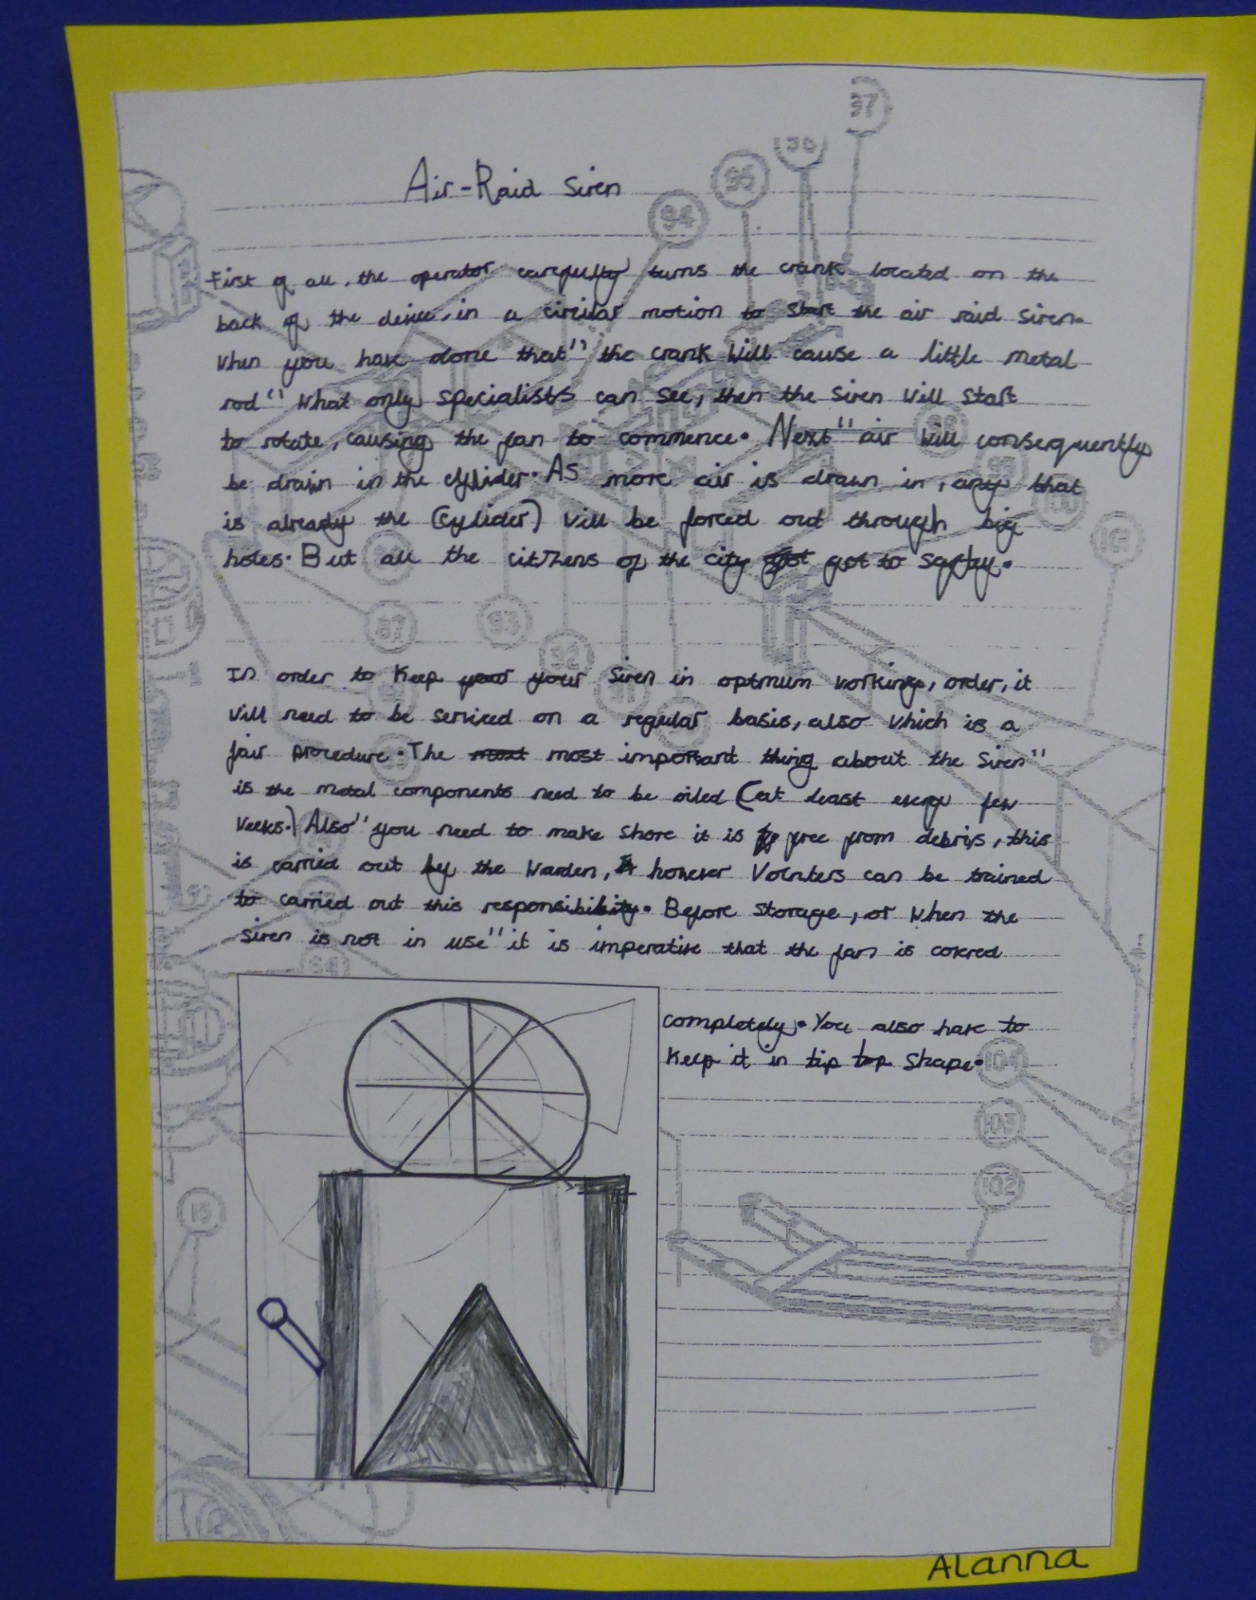 Air-Raid Siren
First of all, the operator carefully turns the crank located on the
back of the device, in a circular motion to start the air raid siren.
When you have done that" the crank will cause a little metal
rod" what only specialists can see, then the siren will start
to rotate, causing the fan to commence. Next" air will consequently
be drawn in the cylider. As more air is drawn in, any that
is already the (cylider) will be forced out through big
holes. But all the citizens of the city got to safety.
In order to keep your siren in optmum working, order, it
will need to be serviced on a regular basis, also which is a
fair procedure. The most important thing about the siren"
is the metal components need to be oiled (at least every few
weeks.) Also" you need to make shore it is free from debris, this
is carried out by the Warden, however Volnters can be trained
to carried out this responsibility. Before storage, or when the
siren is not in use" it is imperative that the fan is covered
completely. You also have to
keep it in tip top shape.
37
96
95
94
93
92
87
100
101
104
103
102
15
Alanna